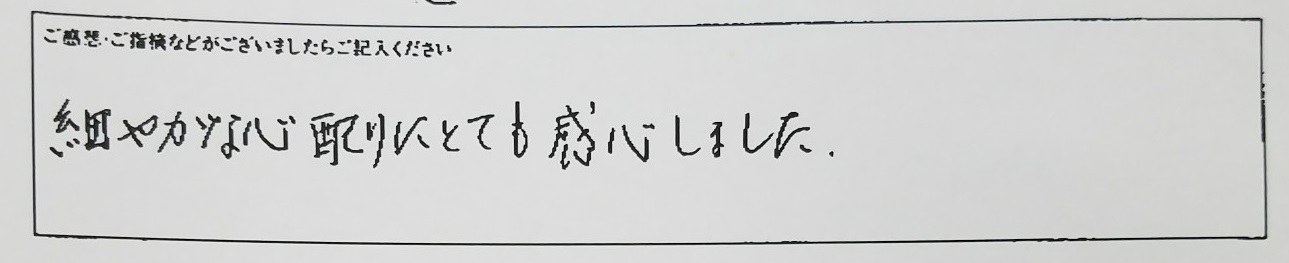 ご感想・ご指摘などがございましたらご記入ください
細やかな心配りにとても感心しました.